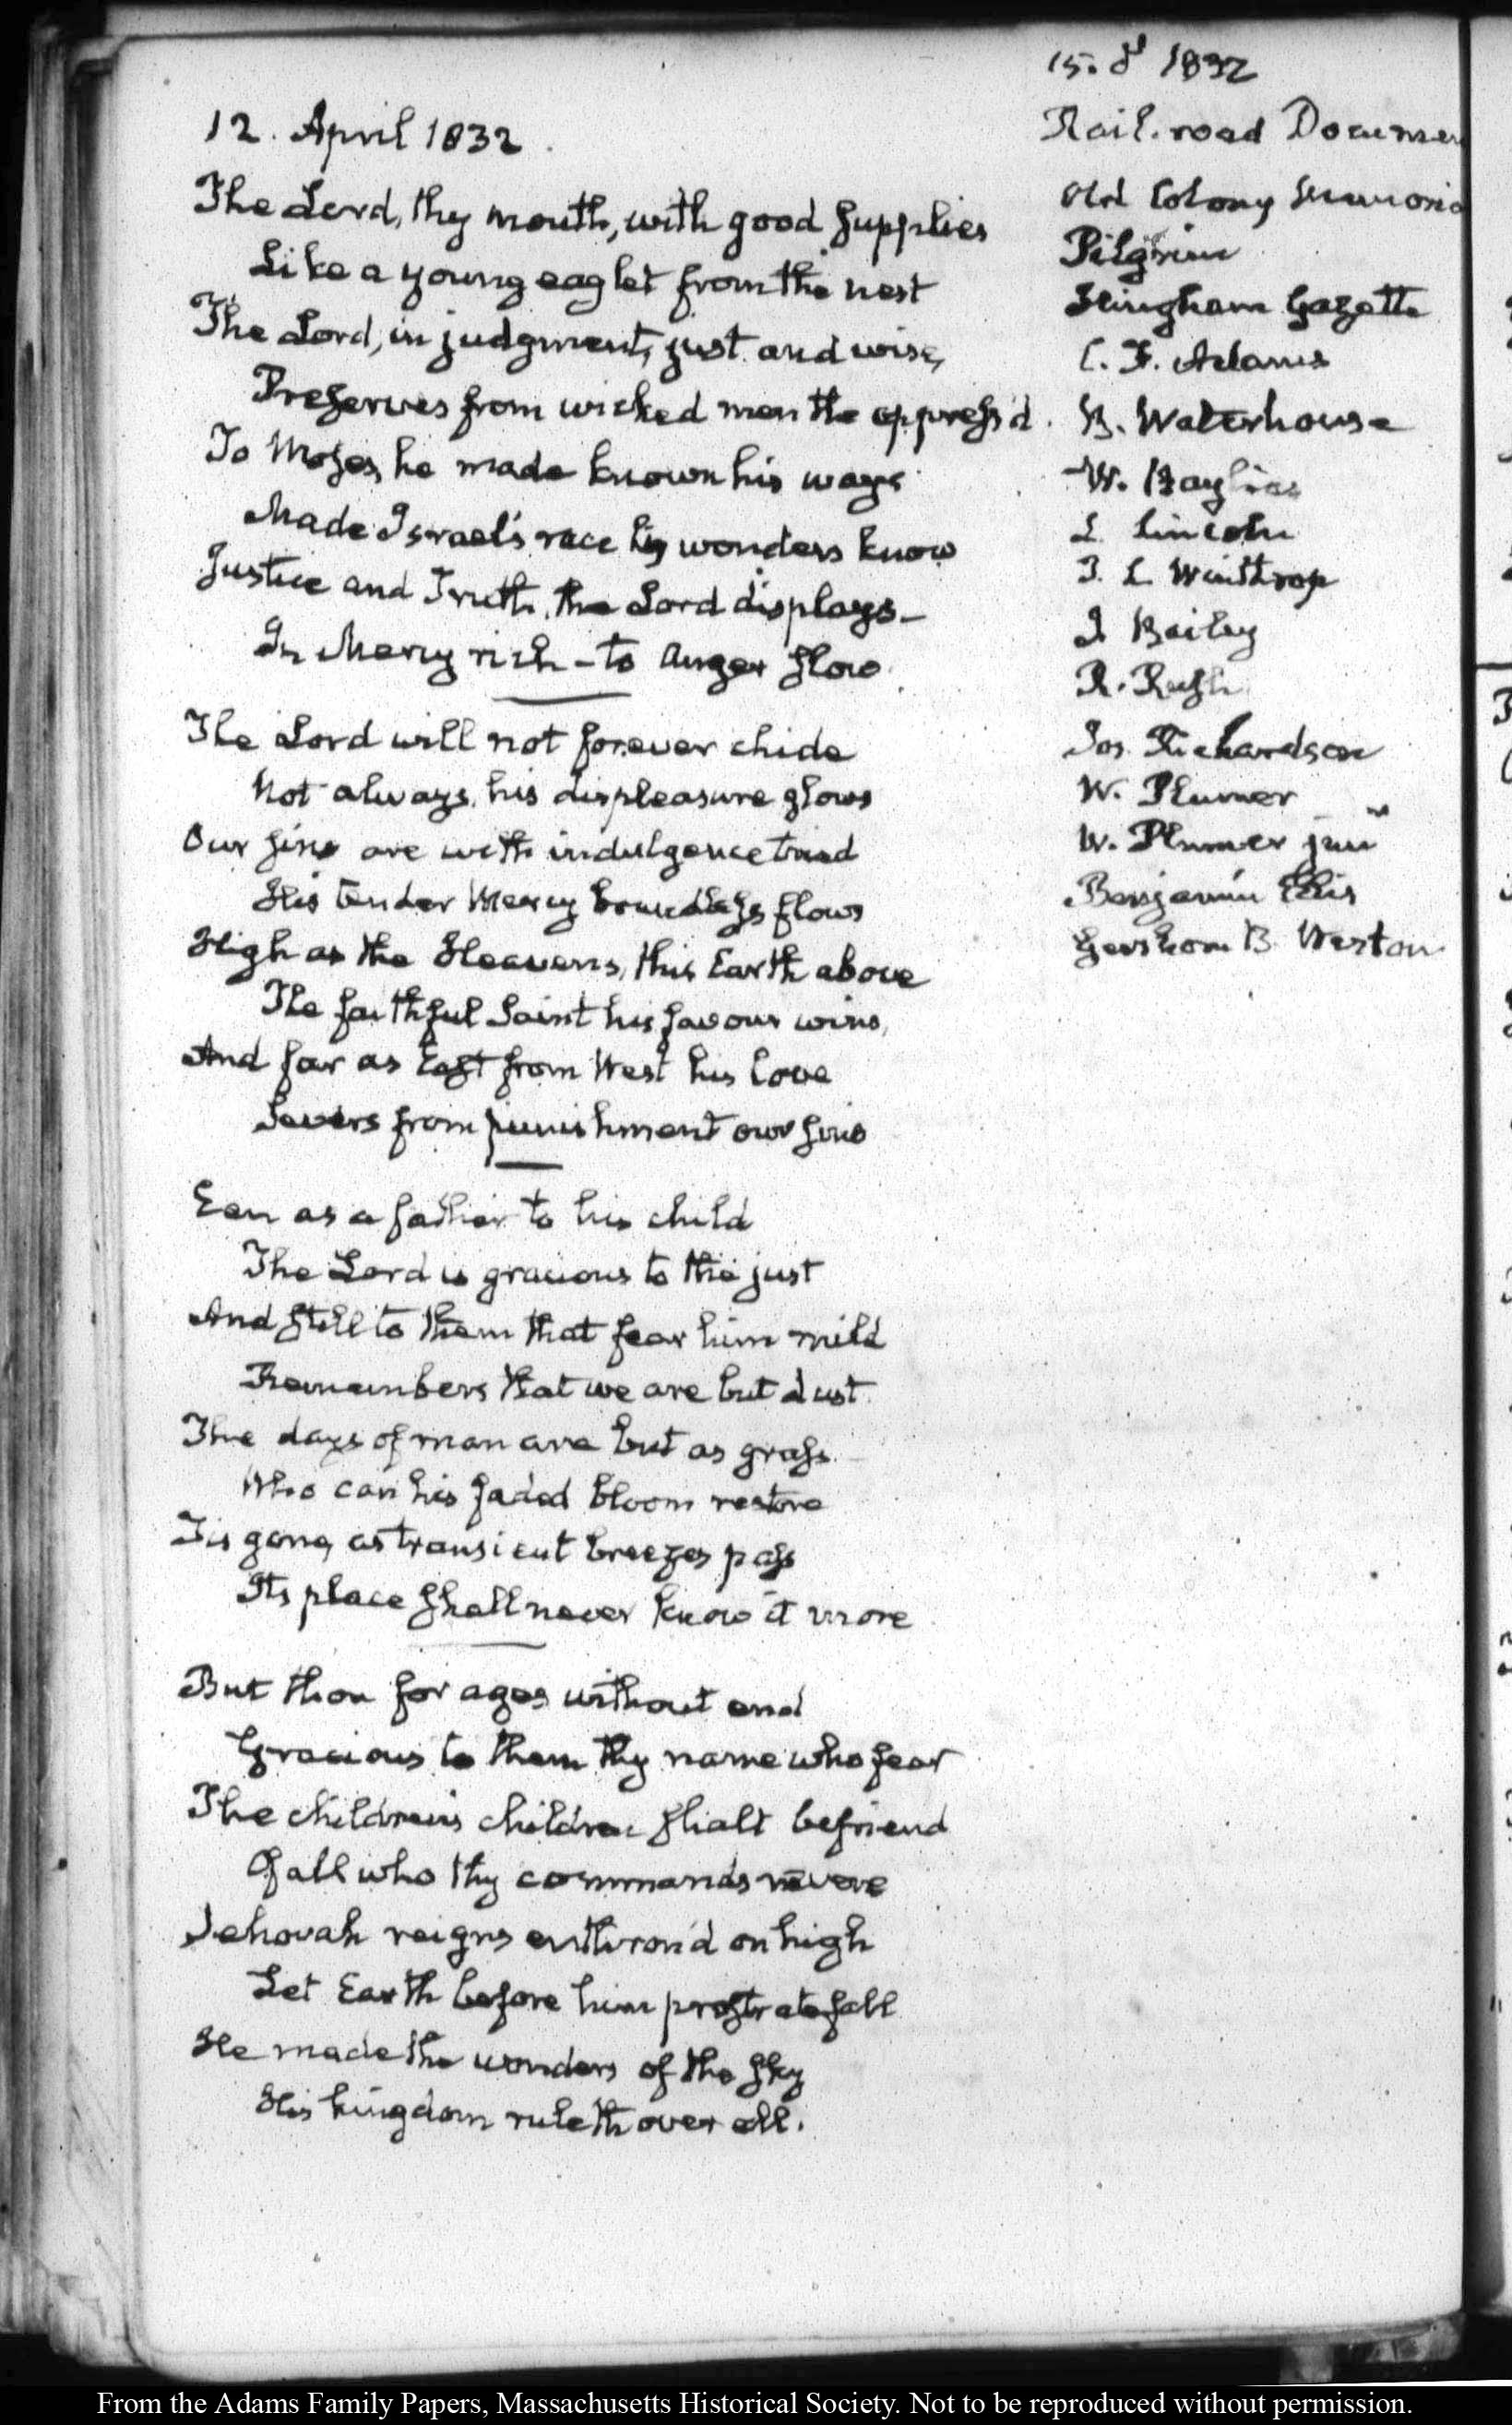 12. April 1832.
The Lord, thy mouth, with good supplies
Like a young eaglet from the nest
The Lord, in judgment, just and wise,
Preserves from wicked men the oppress'd.
To Moses, he made known his ways
Made Israel's race his wonders know
Justice and Truth, the Lord displays—
In Mercy rich—to anger slow.
The Lord will not forever chide
Not always, his displeasure glows
Our sins are with indulgence tried
His tender Mercy boundless flows
High as the Heavens, this Earth above
The faithful Saint his favour wins,
And far as East from West his love
Severs from punishment our sins
Een as a father to his child
The Lord is gracious to the just
And still to them that fear him mild
Remembers that we are but dust.
The days of man are but as grass.
Who can his faded bloom restore
Tis gone, as transient breezes pass
Its place shall never know it more
But thou for ages without end
Gracious to them thy name who fear
The children's children shalt befriend
Of all who thy commands revere
Jehovah reigns enthron'd on high
Let Earth before him prostrate fall
He made the wonders of the sky
His kingdom ruleth over all.
15. d 1832
Rail-road Documen
Old Colony Memoria
Pilgrim
Hingham Gazette
C. F. Adams
B. Waterhouse
W. Baylies
L Lincoln
T. L Winthrop
J Bailey
R. Rush
Jos. Richardson
W. Plumer
W. Plumer junr
Benjamin Ellis
Gershom B. Weston
From the Adams Family Papers, Massachusetts Historical Society. Not to be reproduced without permission.